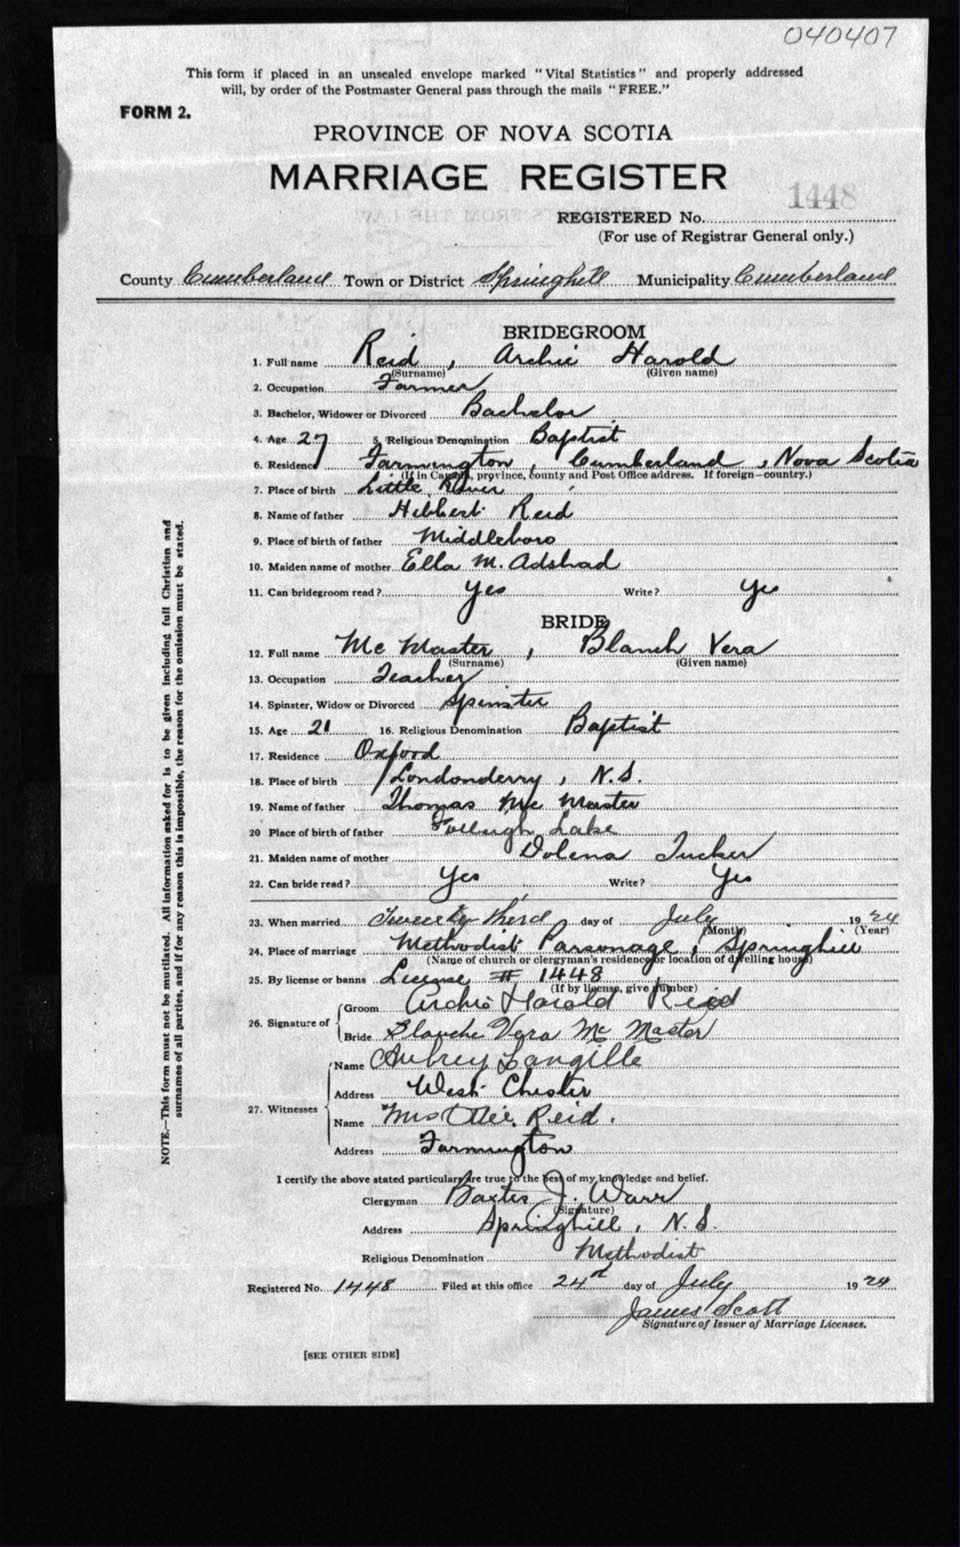 040407
This form if placed in an unsealed envelope marked "Vital Statistics" and properly addressed
will, by order of the Postmaster General pass through the mails "FREE."
FORM 2.
PROVINCE OF NOVA SCOTIA
MARRIAGE REGISTER
1448
REGISTERED No.
(For use of Registrar General only.)
County Cumberland Town or District Springhill Municipality Cumberland
BRIDEGROOM
1. Full name Reid, Archie Harold
(Surname) (Given name)
2. Occupation Farmer
3. Bachelor, Widower or Divorced Bachelor
4. Age 27 5. Religious Denomination Baptist
6. Residence Farmington, Cumberland, Nova Scotia
(If in Canada, province, county and Post Office address. If foreign—country.)
7. Place of birth Little River
8. Name of father Hibbert Reid
9. Place of birth of father Middleboro
10. Maiden name of mother Ella M. Adshad
11. Can bridegroom read? Yes Write? Yes
BRIDE
12. Full name Mc Master, Blanch Vera
(Surname) (Given name)
13. Occupation Teacher
14. Spinster, Widow or Divorced Spinster
15. Age 21 16. Religious Denomination Baptist
17. Residence Oxford
18. Place of birth Londonderry, N.S.
19. Name of father Thomas Mc Master
20 Place of birth of father Folleigh Lake
21. Maiden name of mother Dolena Tucker
22. Can bride read? Yes Write? Yes
23. When married Twenty third day of July 1924
(Month) (Year)
24. Place of marriage Methodist Parsonage, Springhill
(Name of church or clergyman's residence or location of dwelling house)
25. By license or banns License # 1448
(If by license, give number)
26. Signature of Groom Archie Harold Reid
Bride Blanche Vera Mc Master
27. Witnesses Name Aubrey Langille
Address West Chester
Name Mrs Ollie Reid.
Address Farmington
I certify the above stated particulars are true to the best of my knowledge and belief.
Clergyman Baxter J. Warr
(Signature)
Address Springhill, N.S.
Religious Denomination Methodist
Registered No. 1448 Filed at this office 24th day of July 1924
James Scott
Signature of Issuer of Marriage Licenses.
[SEE OTHER SIDE]
NOTE.—This form must not be mutilated. All information asked for is to be given including full Christian and
surnames of all parties, and if for any reason this is impossible, the reason for the omission must be stated.